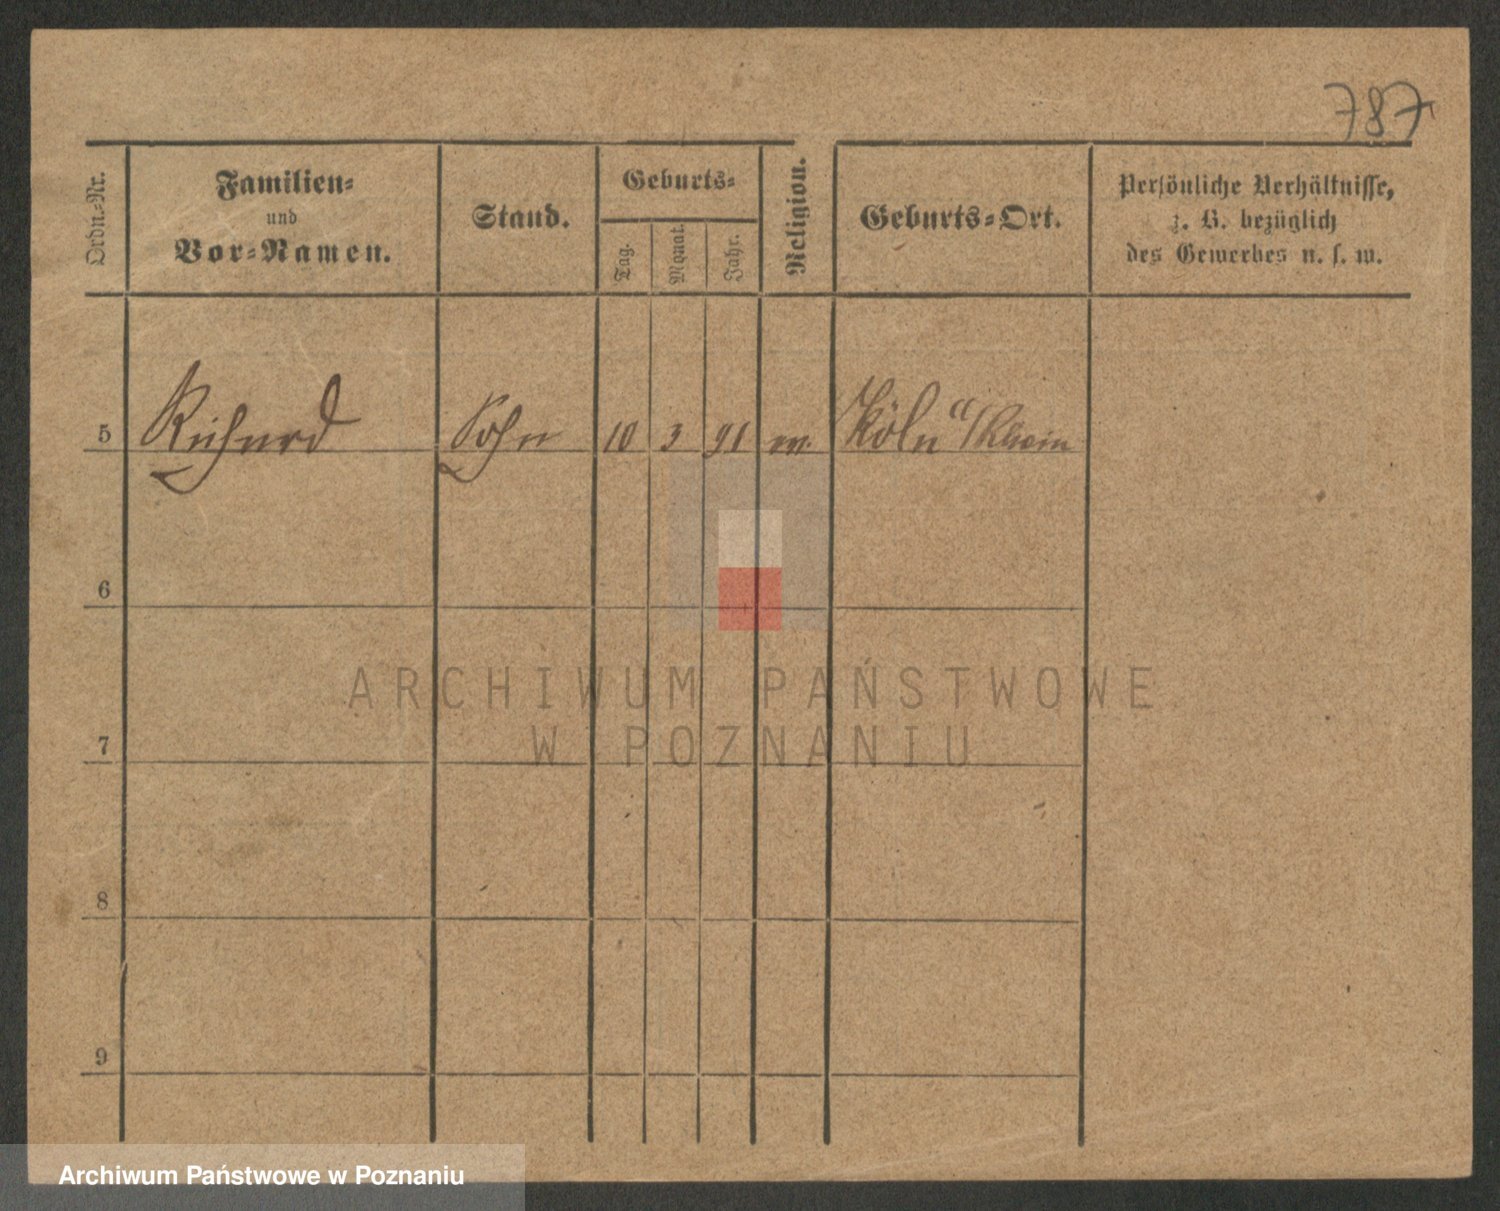 787
Ordn.-Nr.
Familien-
und
Vor-Namen.
Stand.
Geburts-
Tag.
Monat.
Jahr.
Religion.
Geburts-Ort.
Persönliche Verhältnisse,
z. B. bezüglich
des Gewerbes u. s. w.
5 Richard Sohn 10 3 91 Köln a/Rhein
6
7
8
9
ARCHIWUM PAŃSTWOWE
W POZNANIU
Archiwum Państwowe w Poznaniu